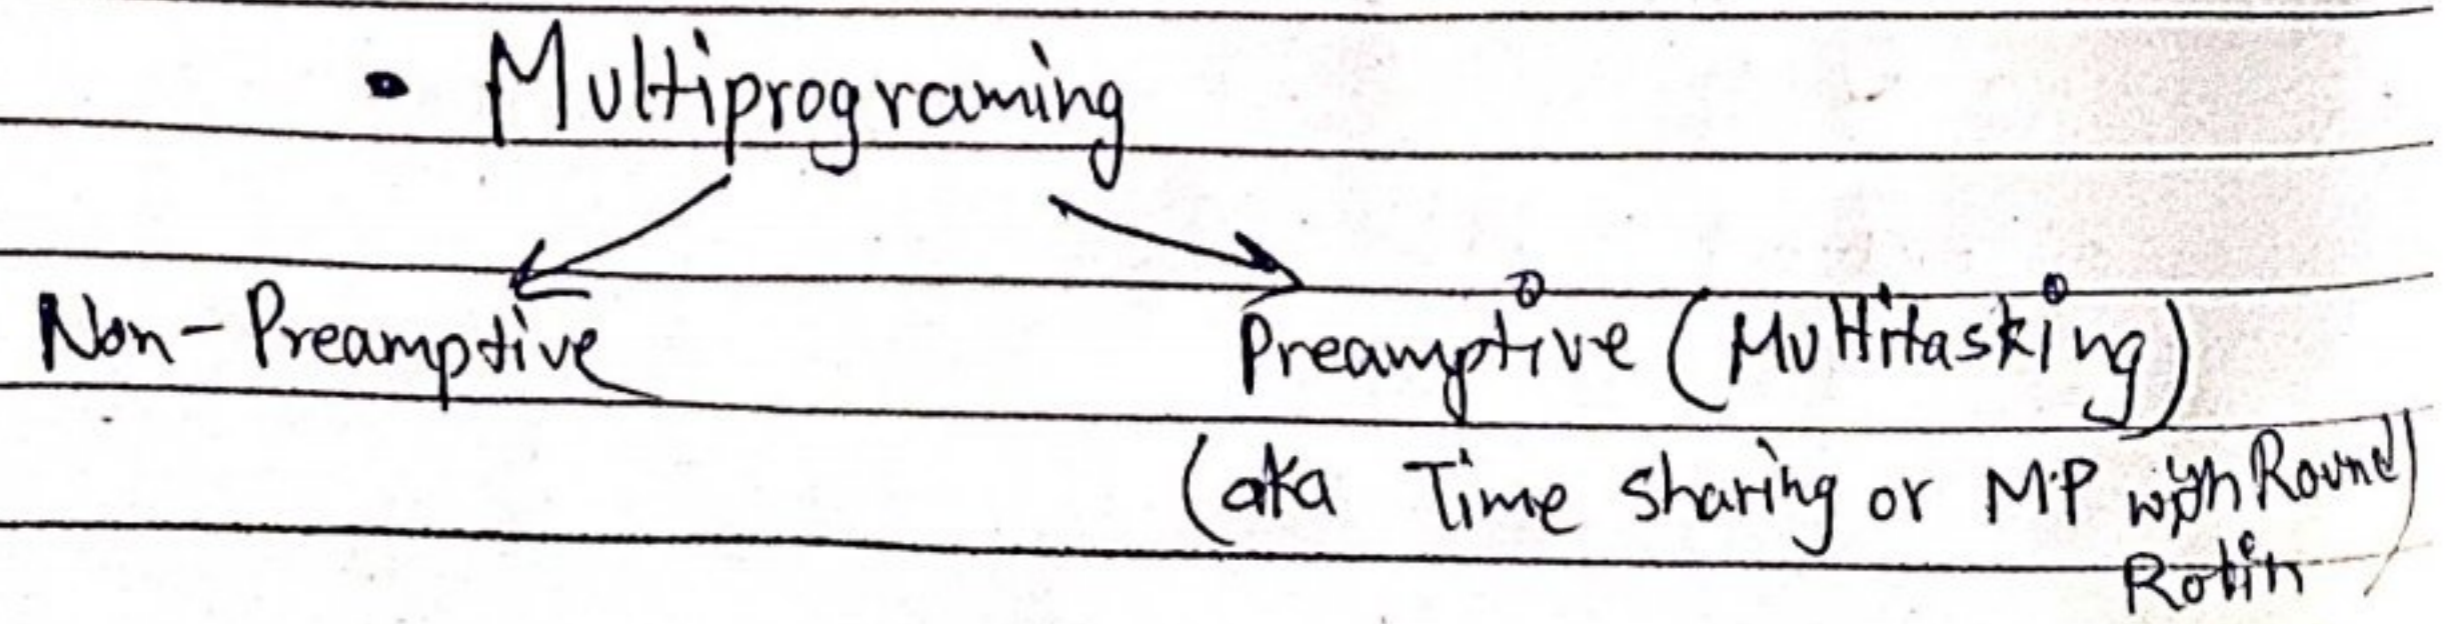 • Multiprograming
Non-Preamptive Preamptive (Multitasking)
(aka Time sharing or M.P with Round
Robin)